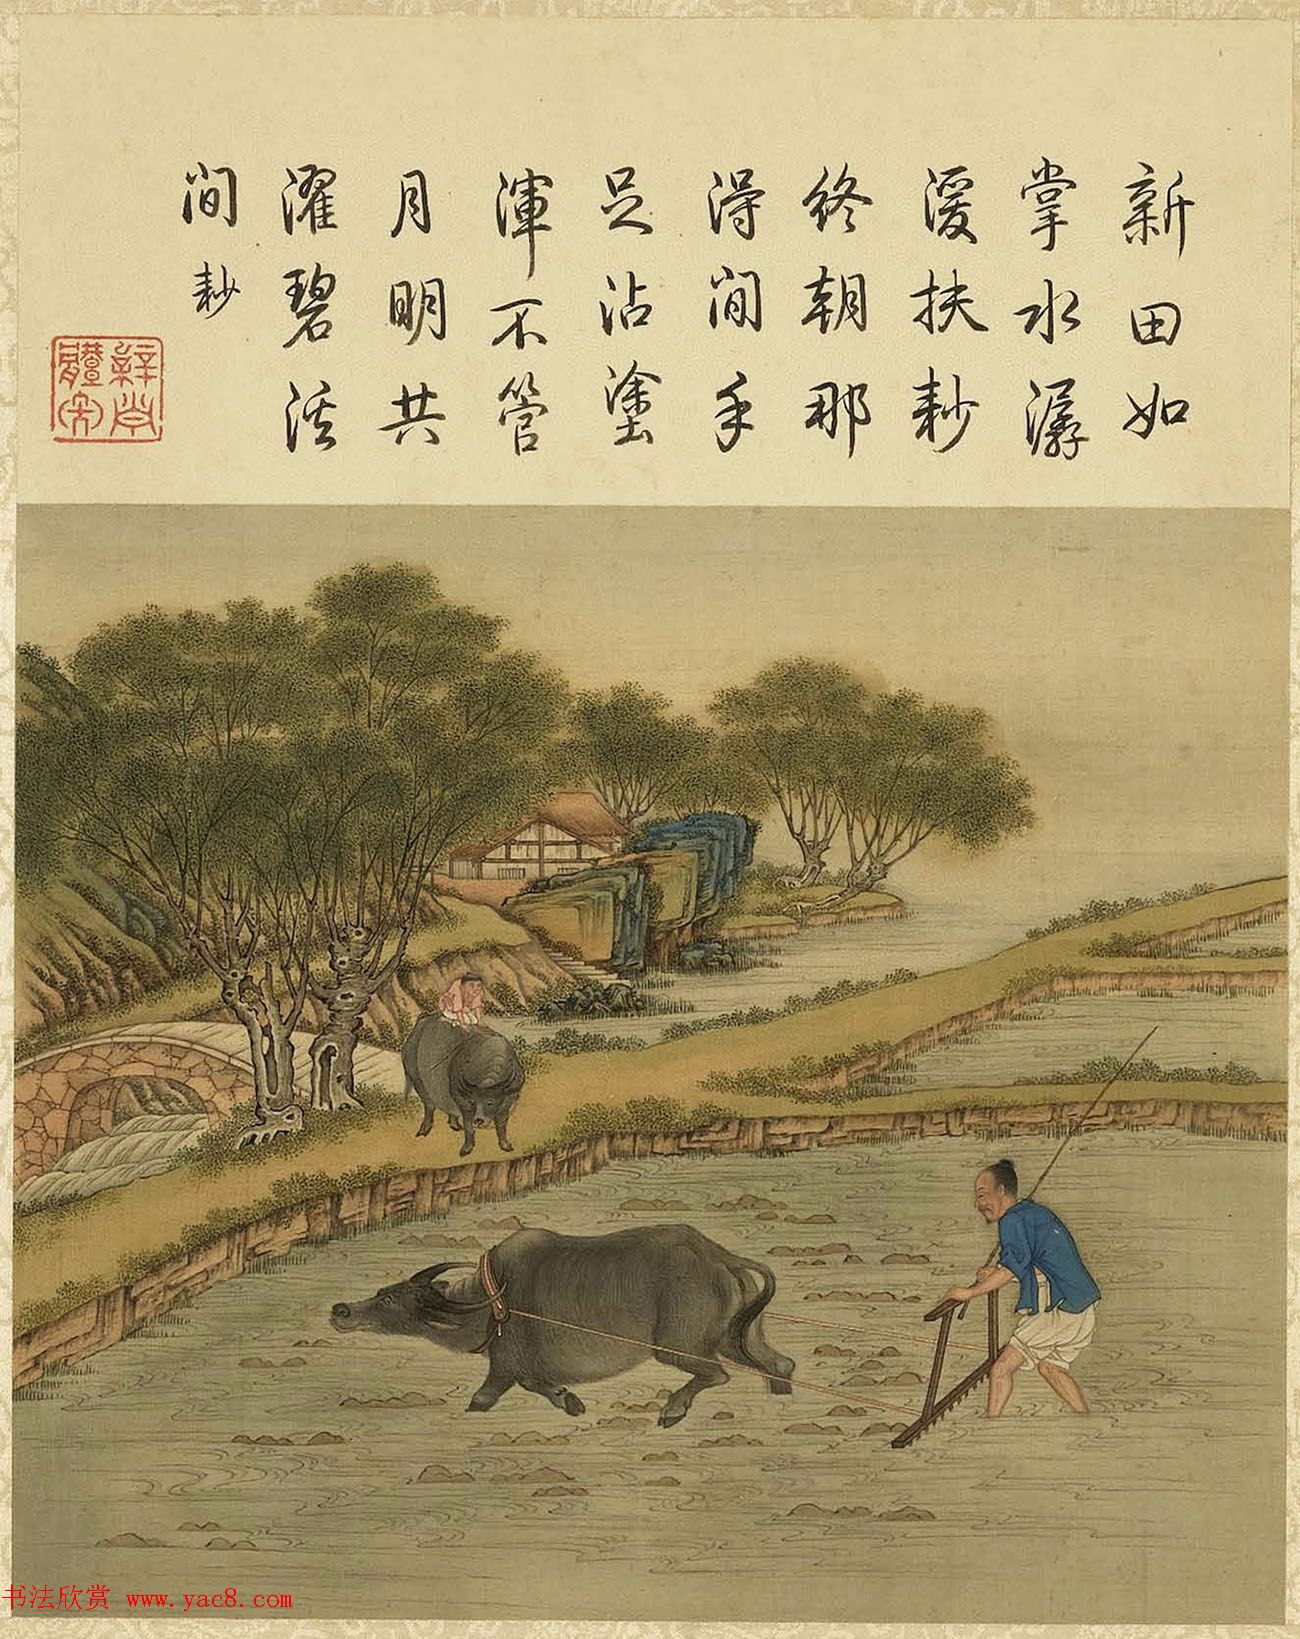 新田如
掌水潺
湲扶耖
终朝那
得间手
足沾塗
渾不管
月明共
濯碧溪
间 耖
辭尚
體要
书法欣赏 www.yac8.com